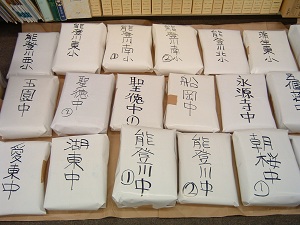 能登川西小
能登川東小
能登川南小①
能登川南小②
能登川北小
蒲生東小
玉園中
聖徳中③
聖徳中①
船岡中
永源寺中
愛東中
湖東中
能登川中①
能登川中②
朝桜中①